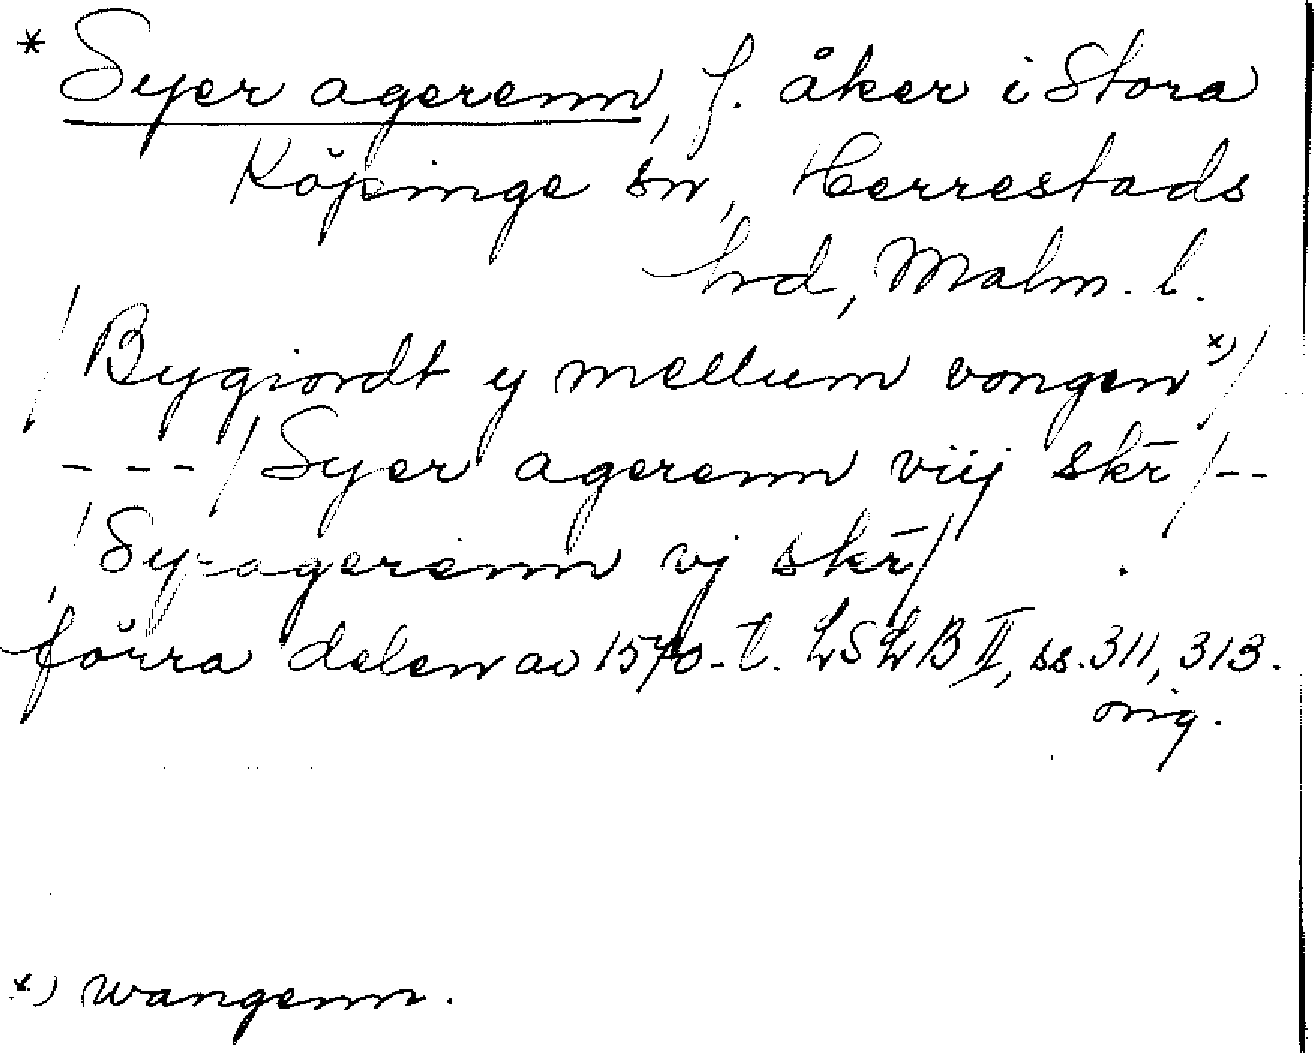 * Syer agerenn, f. åker i Stora
Köpinge sn, Herrestads
hrd, Malm. l.
/Bygiordt y mellum vongen *)/
--- /Syer agerenn viij skr̄/--
/Syragerenn vj skr̄/
förra delen av 1570-t. LSLB II, ss. 311, 313.
orig.
*) wangenn.